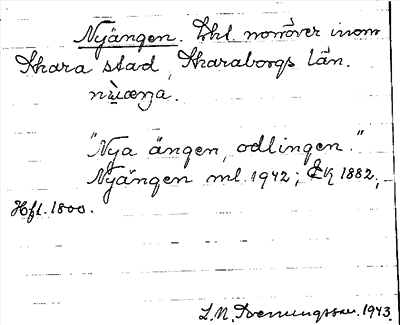 Nyängen. Thl. norröver inom
Skara stad, Skaraborgs län.
"Nya ängen, odlingen."
Nyängen ml. 1942; EK 1882,
Hfl. 1800.
L.N. Svenungsson. 1943.